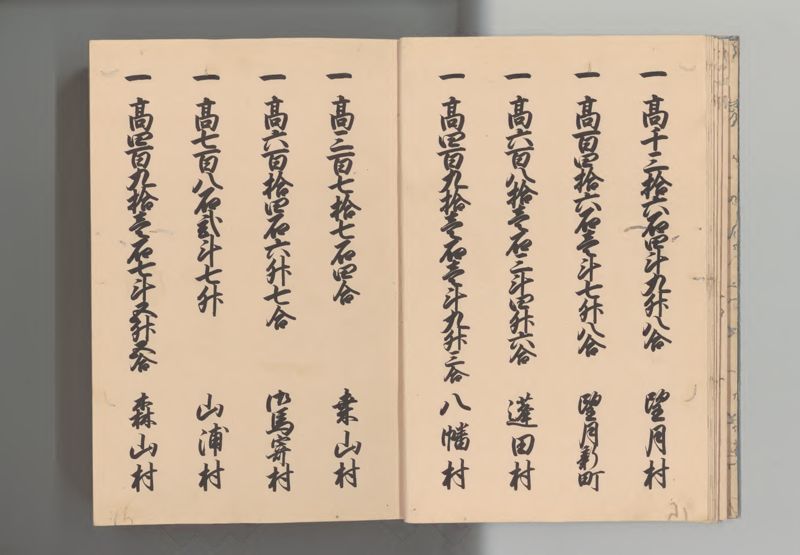 一 高千三拾六石四斗九升八合 望月村
一 高百四拾六石壱斗七升八合 望月新町
一 高六百八拾壱石三斗四升六合 蓬田村
一 高四百九拾壱石壱斗九升三合 八幡村
一 高三百七拾七石四合 桑山村
一 高六百拾四石六升七合 御馬寄村
一 高七百八石弐斗七升 山浦村
一 高四百九拾壱石七斗五升五合 森山村